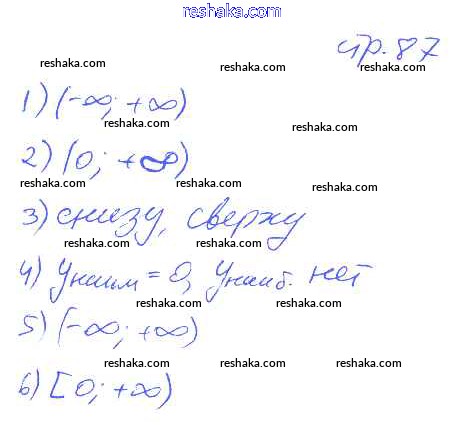 reshaka.com
стр. 87
reshaka.com
reshaka.com reshaka.com
1) (-∞; +∞)
reshaka.com reshaka.com
2) (0; +∞)
reshaka.com reshaka.com
3) снизу, сверху
reshaka.com reshaka.com
4) Унаим = 0, Унаиб. нет
reshaka.com reshaka.com
5) (-∞; +∞)
reshaka.com reshaka.com reshaka.com
6) [0; +∞)
reshaka.com